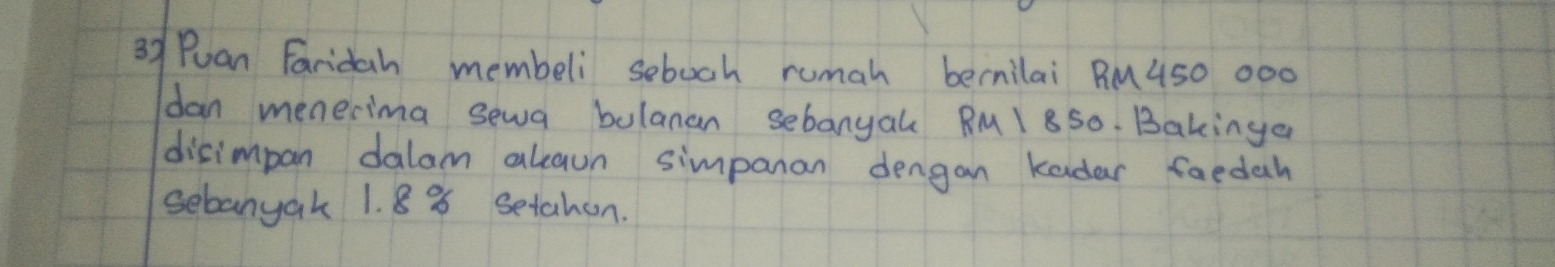 3) Puan Faridah membeli sebuah rumah bernilai RM 450 000
dan menerima sewa bulanan sebanyak RM 1 850. Bakinya
disimpan dalam akaun simpanan dengan kadar faedah
sebanyak 1.8% setahun.